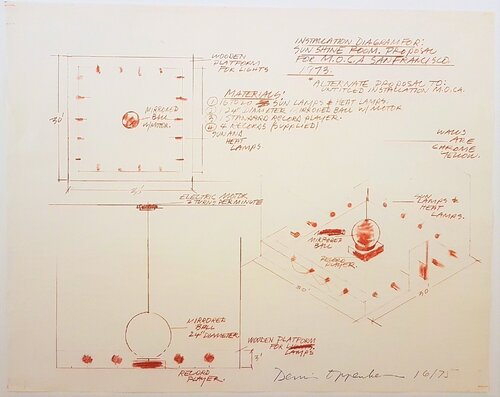 INSTALLATION DIAGRAM FOR:
SUNSHINE ROOM. PROPOSAL
FOR M.O.C.A SAN FRANCISCO
1973.
* ALTERNATE PROPOSAL TO:
UNTITLED INSTALLATION M.O.C.A.
WOODEN
PLATFORM
FOR LIGHTS
MATERIALS:
① 16 TO 20 SUN LAMPS & HEAT LAMPS.
② 24" DIAMETER MIRRORED BALL W/MOTOR
③ 1 STANDARD RECORD PLAYER.
④ 4 RECORDS (SUPPLIED)
MIRRORED
BALL
W/MOTOR.
30'
SUN AND
HEAT
LAMPS.
WALLS
ARE
CHROME
YELLOW.
ELECTRIC MOTOR
2 TURNS PER MINUTE
SUN
LAMPS &
HEAT
LAMPS.
MIRRORED
BALL
RECORD
PLAYER.
30'
30'
MIRRORED
BALL
24" DIAMETER
WOODEN PLATFORM
FOR
LAMPS
3'
RECORD
PLAYER.
Dennis Oppenheim 16/75